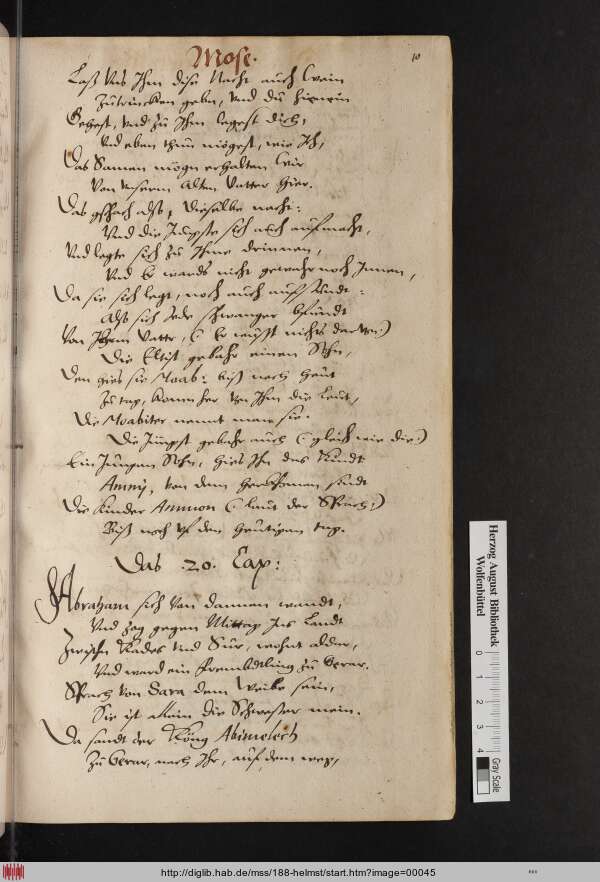 Mose.
10
Laß Uns Ihm dise Nacht auch wein
Zutrincken geben, Und du hinein
Gehest, Und zu Ihm legest dich,
Und eben thun mögest, wie Ich,
Das Samen mögn erhalten wir
Von unserm Alten Vatter hier.
Das gschach also, dieselbe nacht:
Und die Jüngste sich auch aufmacht,
Und legte sich zu Ihme drinnen,
Und Er wards nicht gewahr noch Innen,
Da sie sich legt, noch auch auffstundt:
Alß sich Jede schwanger befundt
Von Ihrem Vatter, (: Er wust nichts darvon:)
Die Eltist gebahr einen Sohn,
Den hies sie Moab: biß noch heut
Zu tag, komm her von Ihm die Leut,
Die Moabiter nennt man sie.
Die Jüngst gebahr auch (: gleich wie die:)
Ein Jungen Sohn, hies Ihn das Kindt
Ammi, von dem herkommen sindt
Die Kinder Ammon (: laut der Sprach:)
Biß noch uf den heutigen tag.
Das .20. Cap:
Abraham sich von dannen wandt,
Und zog gegen Mittag Ins Landt
Zwischn Kades Und Sur, wohnt alder,
Und ward ein frembdtling zu Gerar.
Sprach von Sara dem Weibe sein,
Sie ist allein die Schwester mein.
Da sandt der König Abimelech
Zu Gerar, nach Ihr, auf dem weg,
Herzog August Bibliothek
Wolfenbüttel
0 1 2 3 4
Gray Scale
http://diglib.hab.de/mss/188-helmst/start.htm?image=00045